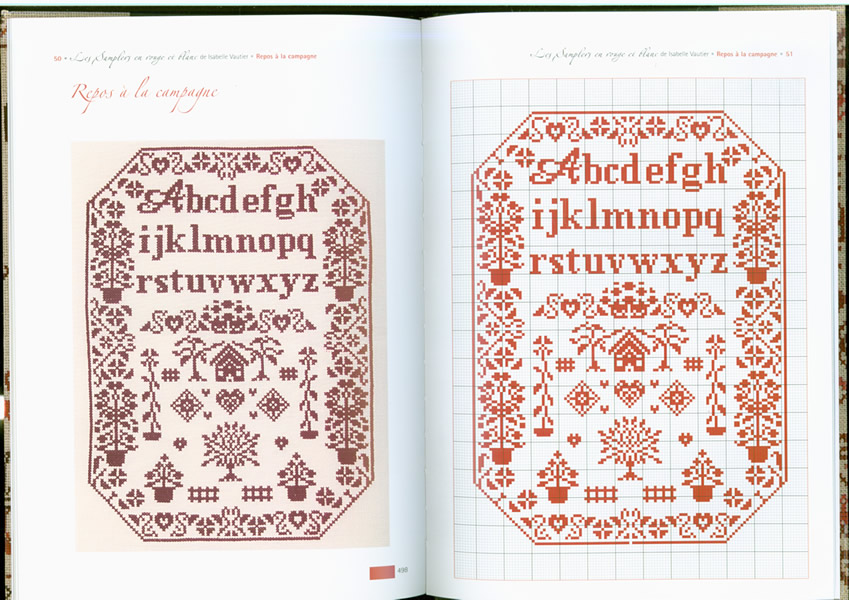 50 • Les Samplers en rouge et blanc de Isabelle Vautier • Repos à la campagne
Repos à la campagne
Abcdefgh
ijklmnopq
rstuvwxyz
498
Les Samplers en rouge et blanc de Isabelle Vautier • Repos à la campagne • 51
Abcdefgh
ijklmnopq
rstuvwxyz